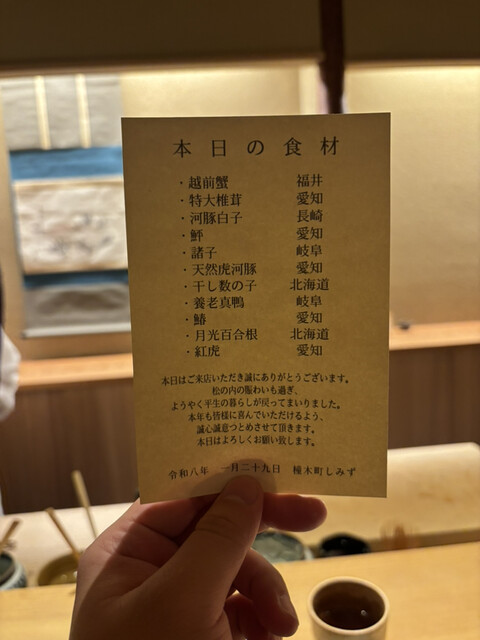 本日の食材
・越前蟹 福井
・特大椎茸 愛知
・河豚白子 長崎
・鮃 愛知
・諸子 岐阜
・天然虎河豚 愛知
・干し数の子 北海道
・養老真鴨 岐阜
・鰆 愛知
・月光百合根 北海道
・紅虎 愛知
本日はご来店いただき誠にありがとうございます。
松の内の賑わいも過ぎ、
ようやく平生の暮らしが戻ってまいりました。
本年も皆様に喜んでいただけるよう、
誠心誠意つとめさせて頂きます。
本日はよろしくお願い致します。
令和八年 一月二十九日 橦木町しみず